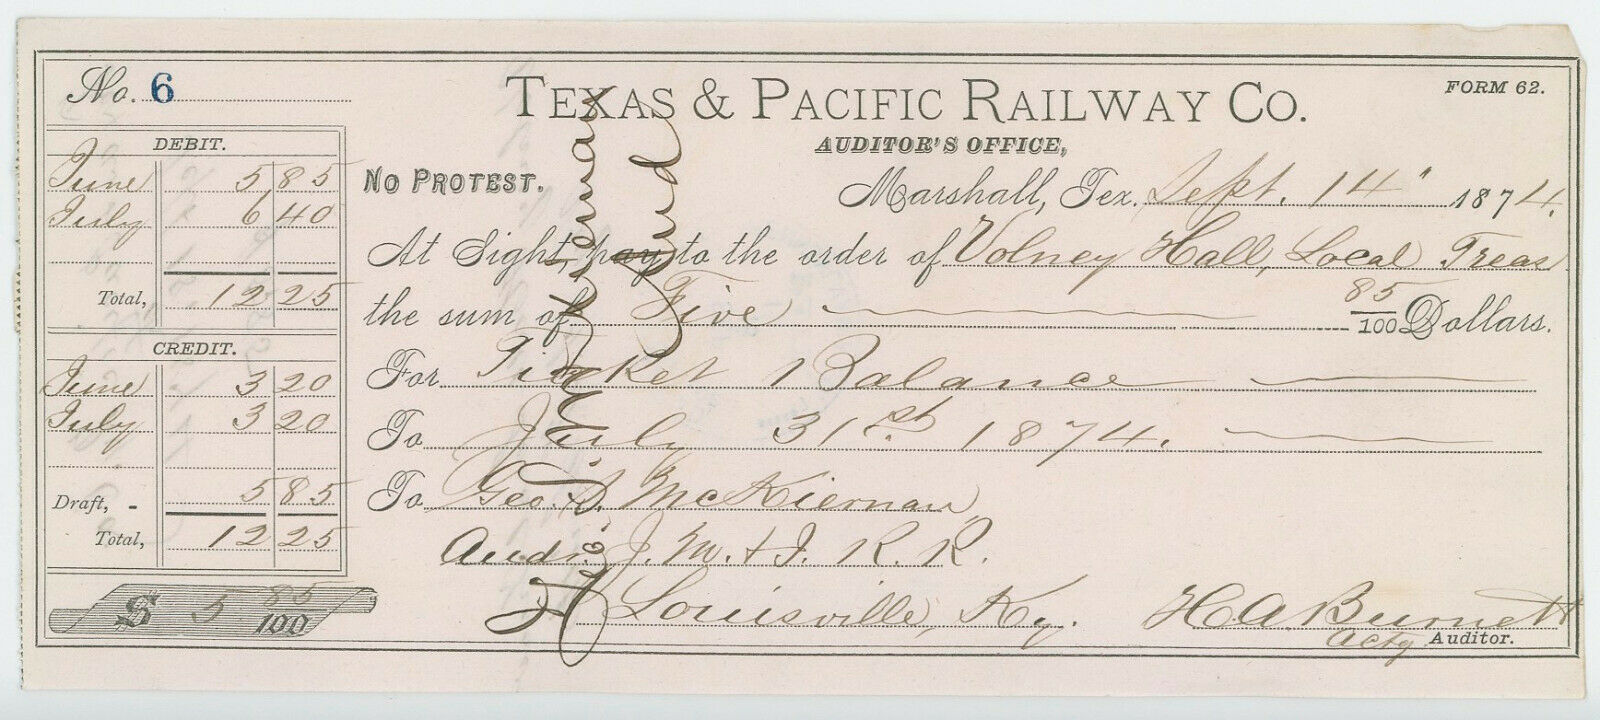 No. 6
TEXAS & PACIFIC RAILWAY CO.
FORM 62.
AUDITOR'S OFFICE,
NO PROTEST.
Marshall, Tex. Sept. 14" 1874.
At Sight pay to the order of Volney Hall, Local Treas
the sum of Five 85/100 Dollars.
For Ticket Balance
To July 31st 1874.
To Geo. S. McKiernan,
Aud. J. M. & I. R. R.
Louisville, Ky.
H A Burnett
Actg Auditor.
DEBIT.
June 5 85
July 6 40
Total, 12 25
CREDIT.
June 3 20
July 3 20
Draft, - 5 85
Total, 12 25
$ 5 85/100
Aud